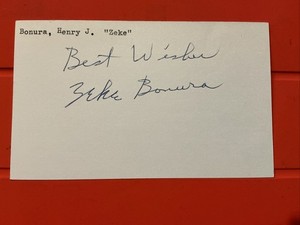 Bonura, Henry J. "Zeke"
Best Wishes
Zeke Bonura